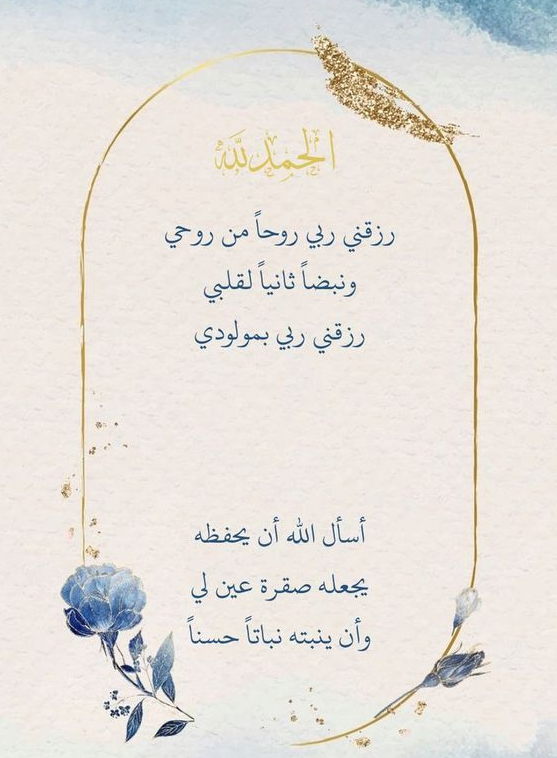 الحمد لله
رزقني ربي روحاً من روحي
ونبضاً ثانياً لقلبي
رزقني ربي بمولودي
أسأل الله أن يحفظه
يجعله صقرة عين لي
وأن ينبته نباتاً حسناً